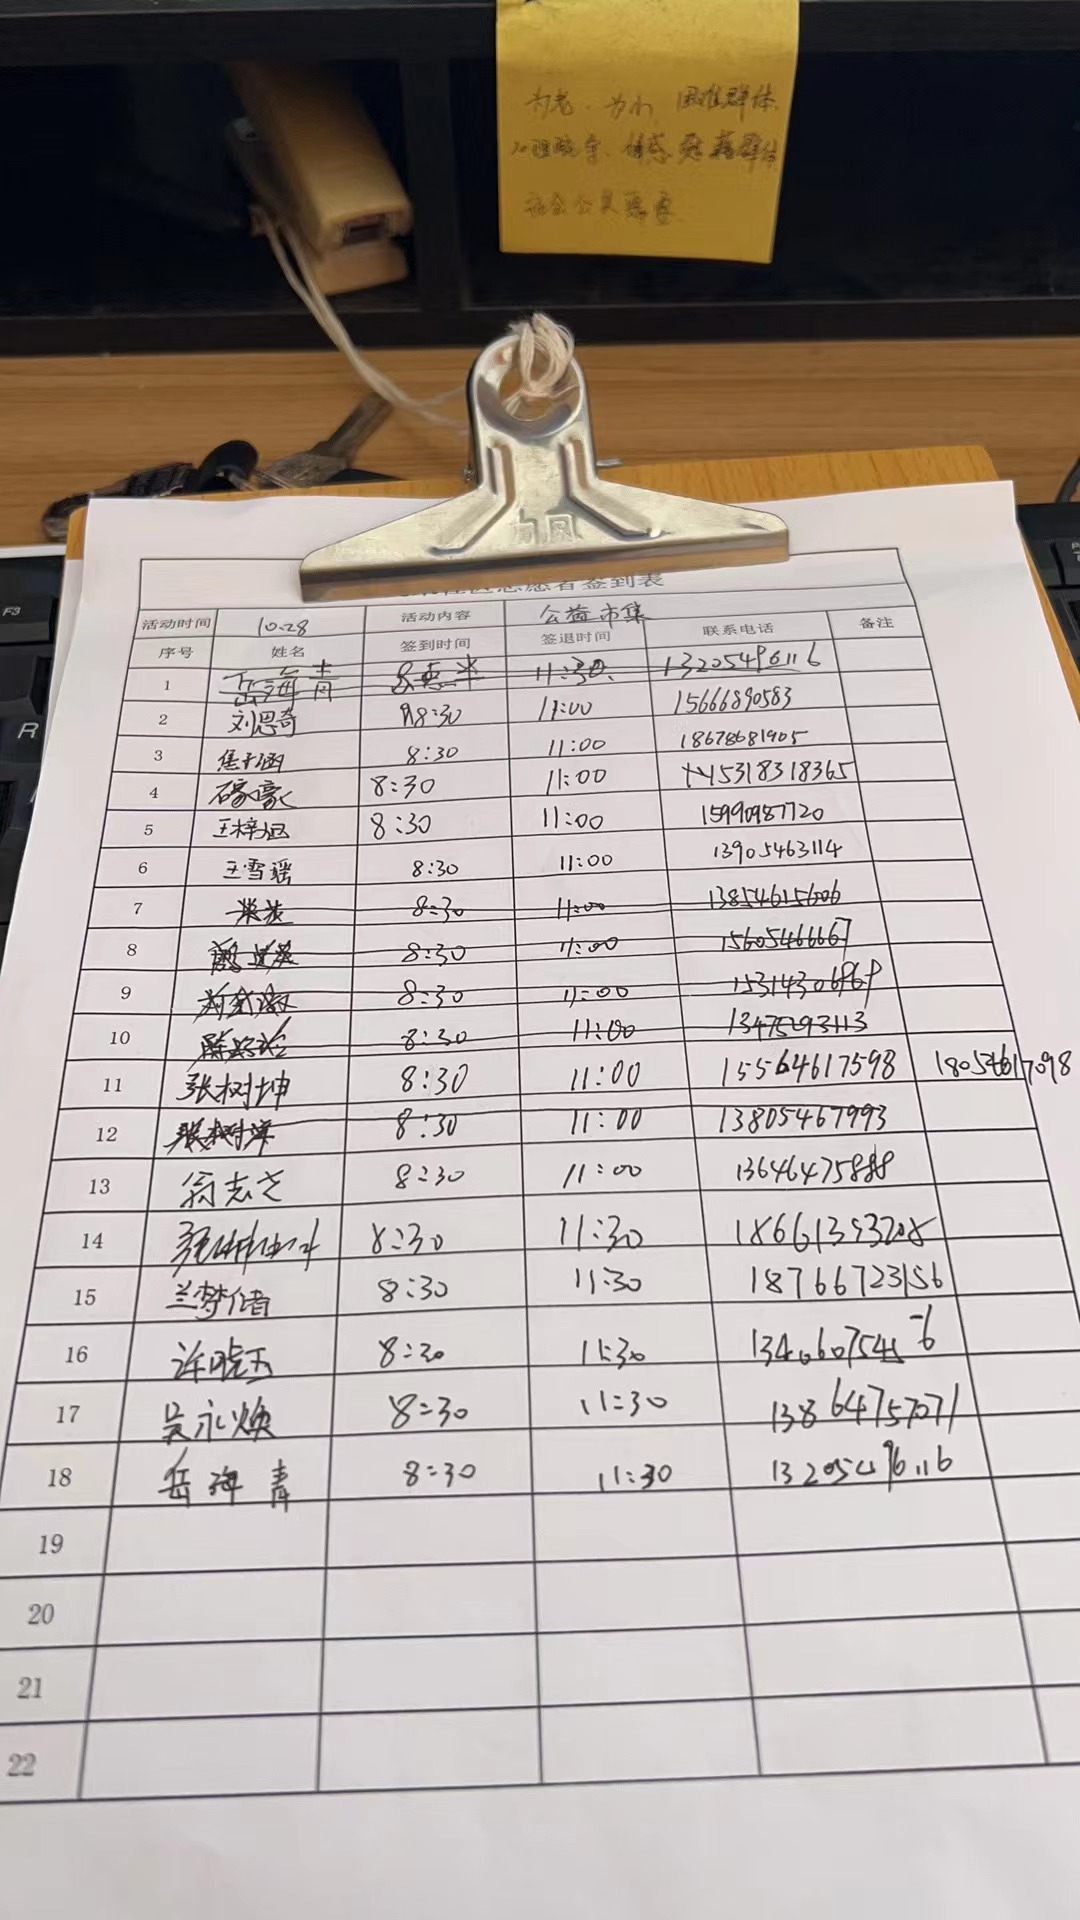 为老、为小、困难群体
社会公益
力风
社区志愿者签到表
活动时间 10.28 活动内容 公益市集
序号 姓名 签到时间 签退时间 联系电话 备注
1 岳海青 11:30 13205496116
2 刘思奇 8:30 11:00 15666890583
3 焦子涵 8:30 11:00 18678681905
4 8:30 11:00 15318318365
5 王梓涵 8:30 11:00 15990987720
6 王雪瑶 8:30 11:00 13905463114
7 8:30 11:00 13854615606
8 8:30 11:00 15605466667
9 8:30 11:00
10 8:30 11:00 13475293113
11 张树坤 8:30 11:00 15564617598 18054617098
12 张树洋 8:30 11:00 13805467993
13 翁志芝 8:30 11:00 13646475888
14 8:30 11:30 18661393208
15 兰梦倩 8:30 11:30 18766723156
16 许晓玉 8:30 11:30
17 吴永焕 8:30 11:30 13864757071
18 岳海青 8:30 11:30 13205496116
19
20
21
22
F3
R